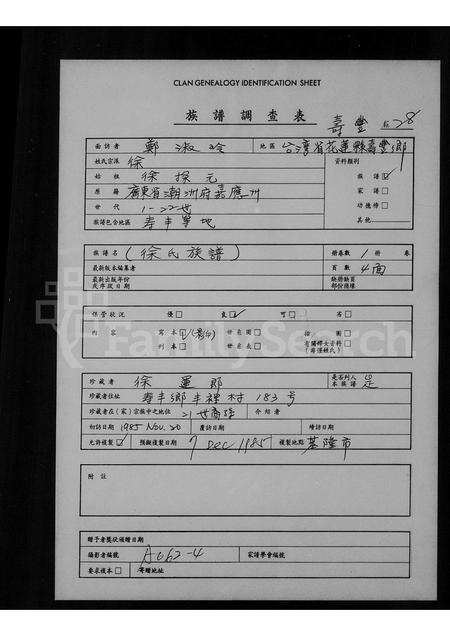 CLAN GENEALOGY IDENTIFICATION SHEET
族譜調查表 壽豐 28
面訪者 鄭淑玲 地區 台灣省花蓮縣壽豐鄉
姓氏宗派 徐 資料類別
始祖 徐探元 族譜 ☑
原籍 廣東省潮洲府嘉應州 家譜 □
世代 1-22世 功德榜 □
族譜包含地區 寿丰等地 其他
族譜名 (徐氏族譜) 冊卷數 1 冊 卷
最新版本編纂者 頁數 4面
最新出版年份或序跋日期 缺冊缺頁部份機壞
保管狀況 優 □ 良 ☑ 可 □ 劣 □
內容 寫本 ☑ 世系圖 □ 插圖 □
刊本 □ 世系表 □ 有關移大資料 □
珍藏者 徐運郎 是否列入本族譜 是
珍藏者住址 寿丰鄉丰裡村183号
珍藏者在(家)宗族中之地位 21世裔孫 介紹者
初訪日期 1985 Nov. 20 覆訪日期 續訪日期
允許複製 ☑ 預擬複製日期 7 Dec 1985 複製地點 基隆市
附註
贈予者獎狀頒贈日期
攝影者編號 A062-4 家譜學會編號
要求複本 □ 寄贈地址
FamilySearch